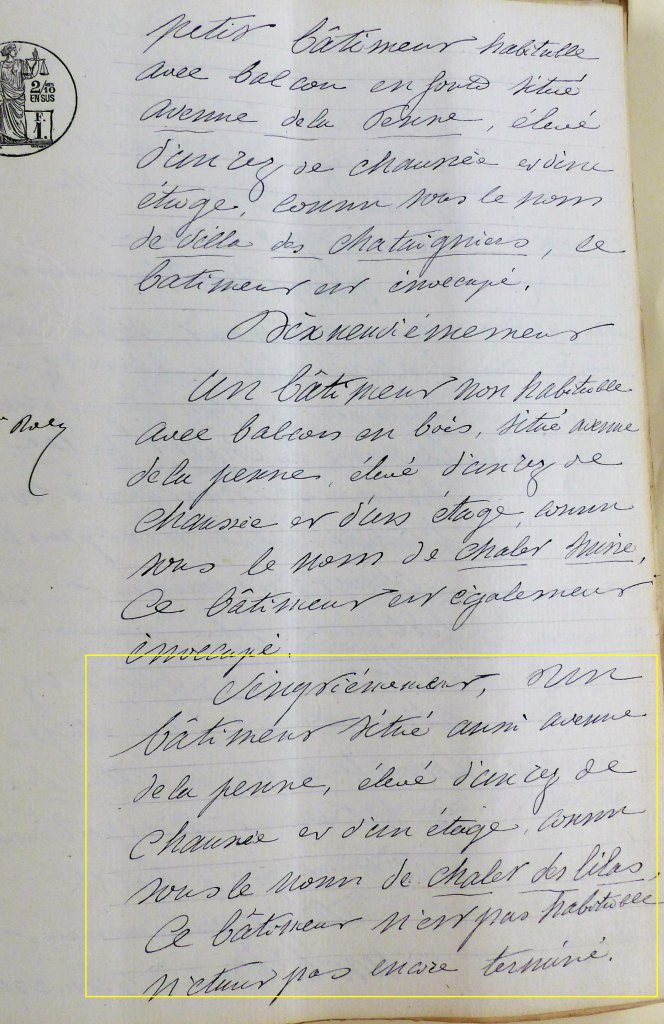 2/10
EN SUS
F.
1.
petit bâtiment habitable
avec balcon en fonte situé
avenue de la Penne, élevé
d'un rez de chaussée et d'un
étage, connu sous le nom
de villa des chataigniers, ce
batiment est innocupé.
Dixneuvièmement
Un bâtiment non habitable
avec balcon en bois, situé avenue
de la penne, élevé d'un rez de
chaussée et d'un étage, connu
sous le nom de chalet suisse,
Ce bâtiment est également
innocupé.
Vingtièmement, Un
bâtiment situé aussi avenue
de la penne, élevé d'un rez de
chaussée et d'un étage, connu
sous le nom de chalet des lilas.
Ce bâtiment n'est pas habitable
n'étant pas encore terminé.